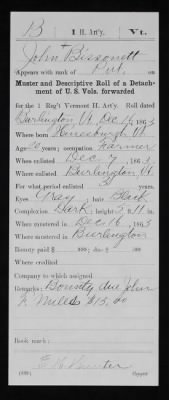 B | 1 H. Art'y. | Vt.
John Bissonett
Appears with rank of Pvt. on
Muster and Descriptive Roll of a Detach-
ment of U. S. Vols. forwarded
for the 1 Reg't Vermont H. Art'y. Roll dated
Burlington Vt. Dec 16, 1863
Where born Hinesburgh Vt.
Age 20 years; occupation Farmer
When enlisted Dec 7, 1863
Where enlisted Burlington Vt.
For what period enlisted years.
Eyes Gray; hair Black
Complexion Dark; height 5 ft. 11 in.
When mustered in Dec 16, 1863
Where mustered in Burlington
Bounty paid $ 100; due $ 100
Where credited
Company to which assigned
Remarks: Bounty due John
Miles $15.00
Book mark:
Copyist.